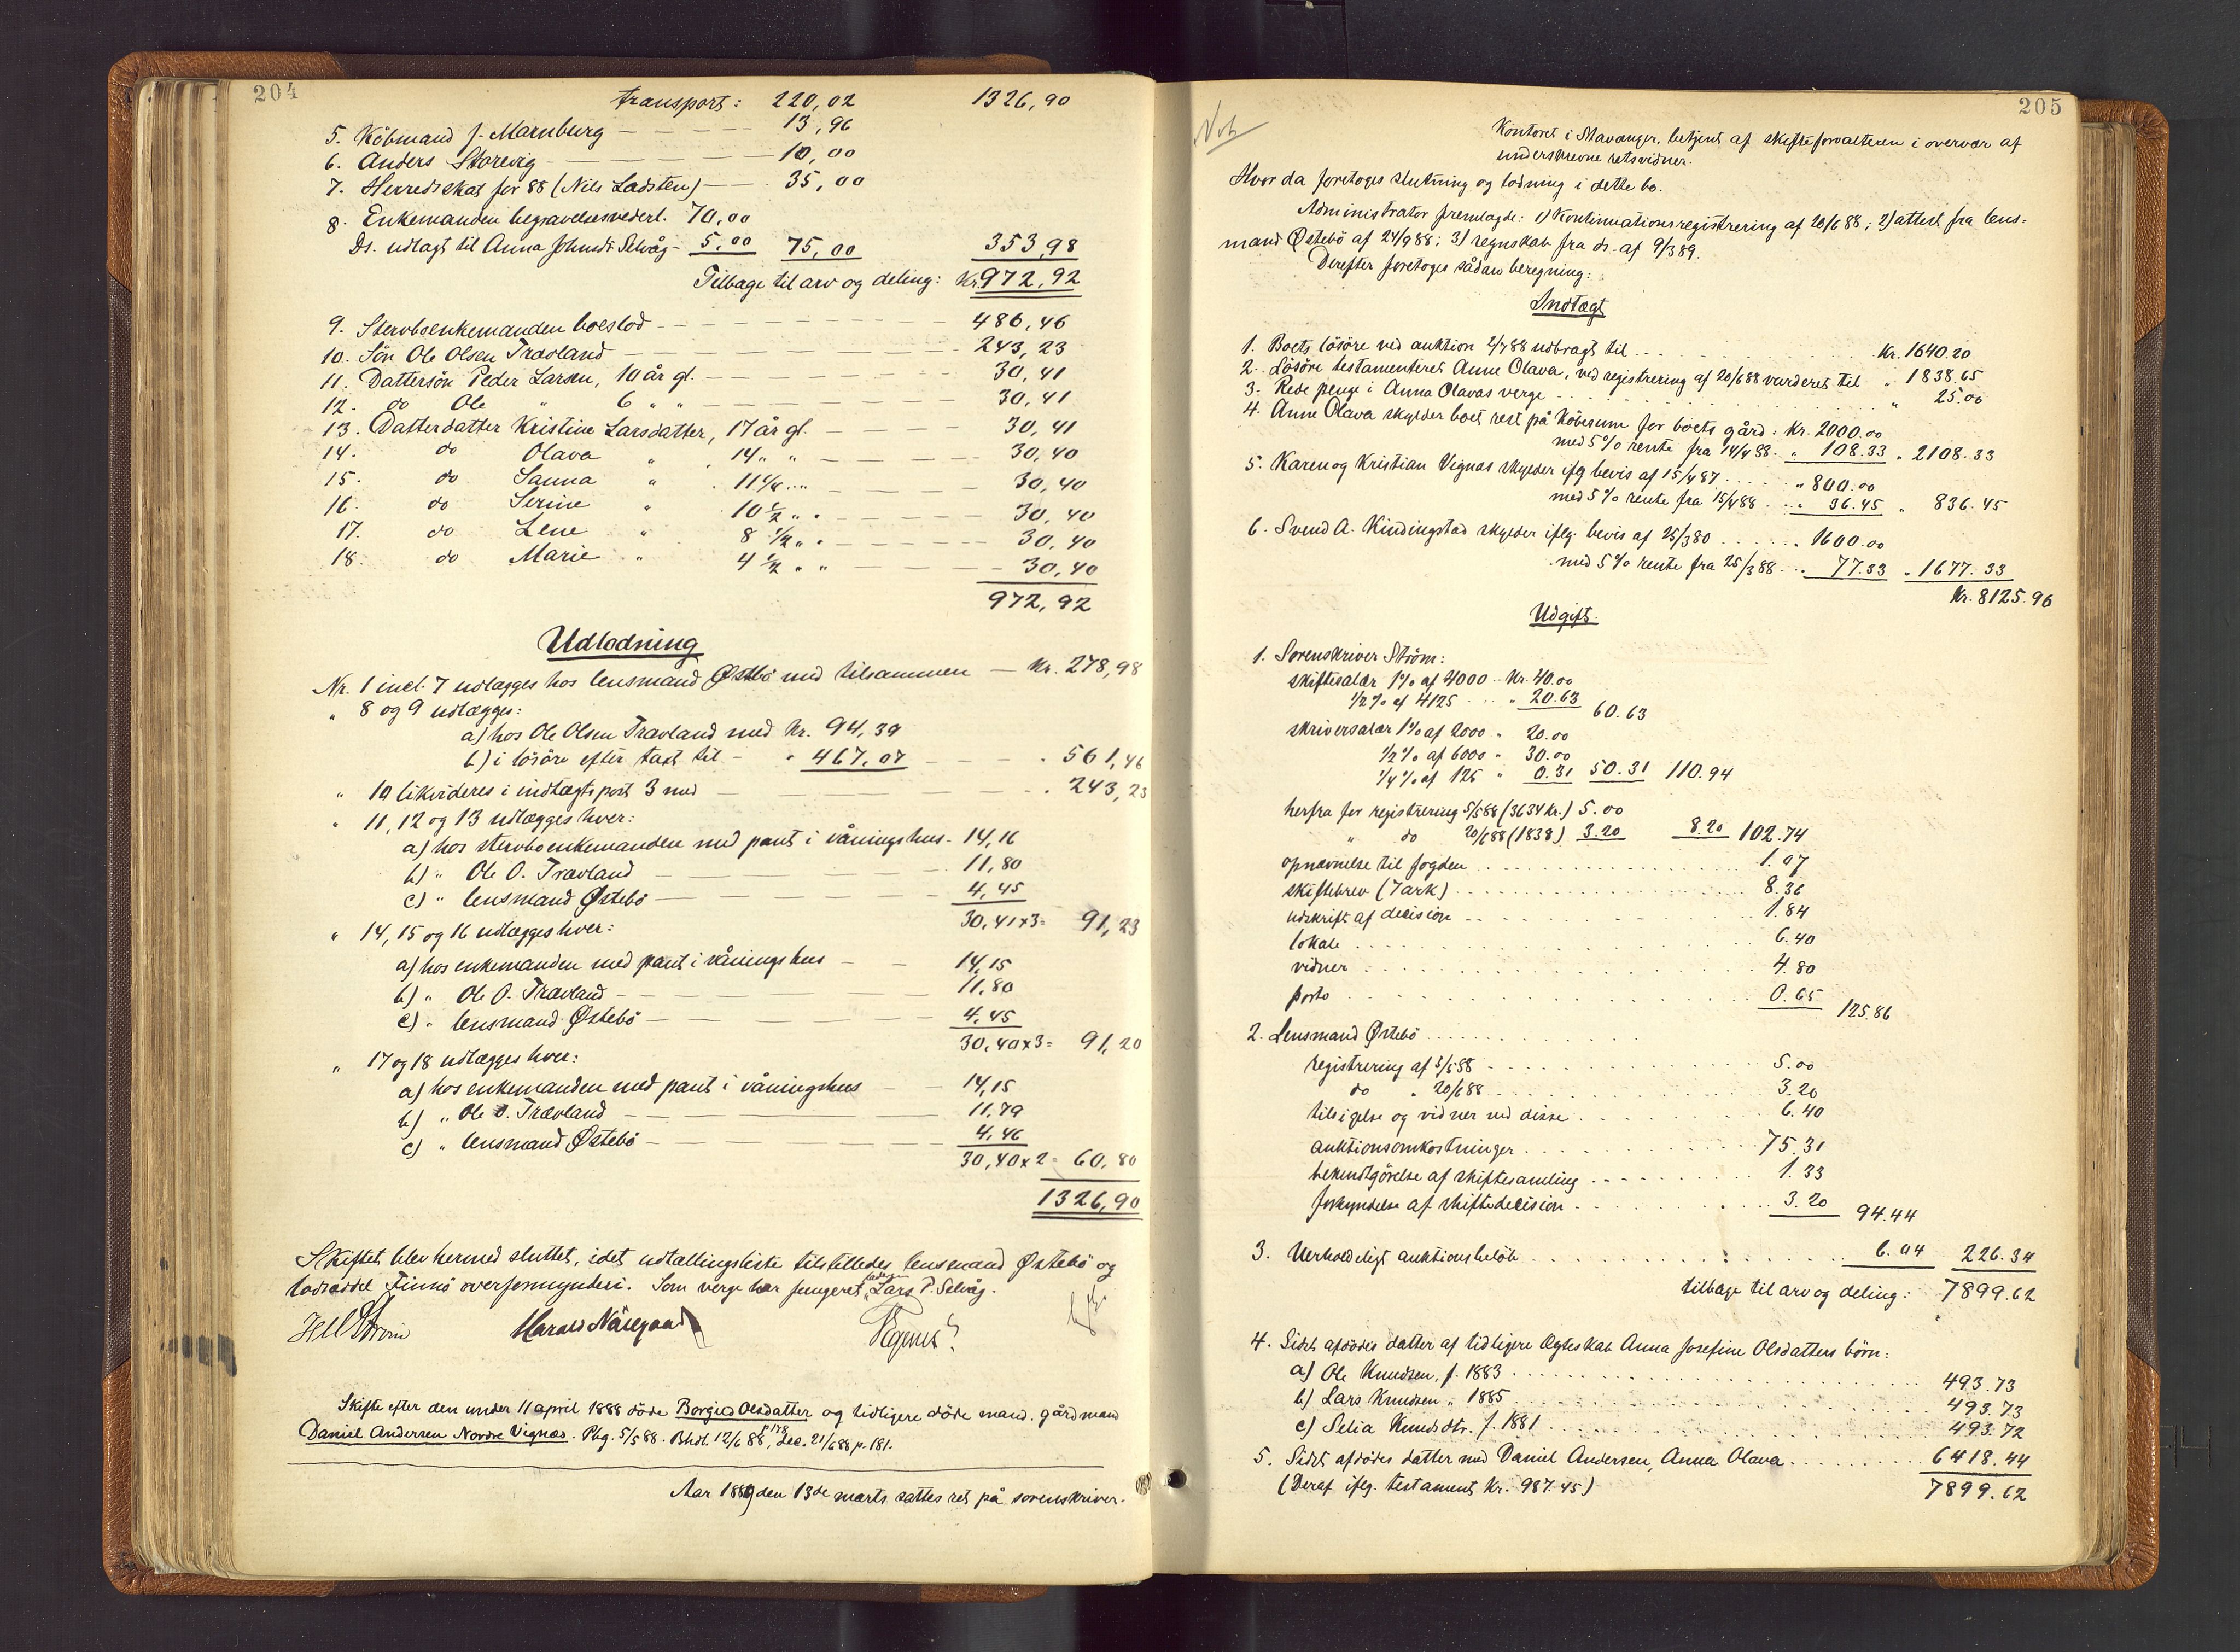 204
transport: 220,02 1326,90
5. Köbmand J. Marnburg — 13,96
6. Anders Storevig — 10,00
7. Herredsskat for 88 (Nils Ladsten) — 35,00
8. Enkemanden begravelsesvederl. 70,00
Ds. udlagt til Anna Johnsdr Selvåg - 5,00 75,00 353,98
Tilbage til arv og deling: Kr. 972,92
9. Stervboenkemanden boeslod — 486,46
10. Sön Ole Olsen Travland — 243,23
11. Dattersön Peder Larsen, 10 år gl. — 30,41
12. do Ole " 6 " " — 30,41
13. Datterdatter Kristine Larsdatter, 17 år gl. — 30,41
14. do Olava " 14 " " — 30,40
15. do Sanna " 11 1/4 " " — 30,40
16. do Serine " 10 1/2 " " — 30,40
17. do Lene " 8 1/2 " " — 30,40
18. do Marie " 4 1/2 " " — 30,40
972,92
Udlodning
Nr. 1 incl. 7 udlægges hos lensmand Østebö med tilsammen — Kr. 278,98
" 8 og 9 udlægges:
a) hos Ole Olsen Travland med Kr. 94,39
b) i lösöre efter taxt til - " 467,07 — " 561,46
" 10 likvideres i indtægtspost 3 med — " 243,23
" 11, 12 og 13 udlægges hver:
a) hos stervboenkemanden med pant i våningshus - 14,16
b) " Ole O. Travland — 11,80
c) " lensmand Østebö — 4,45
30,41x3= 91,23
" 14, 15 og 16 udlægges hver:
a) hos enkemanden med pant i våningshus — 14,15
b) " Ole O. Travland — 11,80
c) " lensmand Østebö — 4,45
30,40x3= 91,20
" 17 og 18 udlægges hver:
a) hos enkemanden med pant i våningshus — 14,15
b) " Ole O. Travland — 11,79
c) " lensmand Østebö — 4,46
30,40x2= 60,80
1326,90
Skiftet blev hermed sluttet, idet udtællingsliste tilstilledes lensmand Østebö og
lodseddel Finnö overformynderi. Som verge har fungeret faderen Lars P. Selvåg.
Harald Någaard
Skifte efter den under 11 april 1888 döde Borgild Olsdatter og tidligere döde mand, gårdmand
Daniel Andersen Nordre Vignæs. Phg. 5/5 88. Bhdl. 12/6 88 p. 178, dec. 21/6 88 p. 181.
Aar 1889 den 13de marts sattes ret på sorenskriver-
205
Kontoret i Stavanger, betjent af skifteforvalteren i overvær af
underskrevne retsvidner.
Hvor da foretoges slutning og lodning i dette bo.
Administrator fremlagde: 1) Kontinuationsregistrering af 20/6 88; 2) attest fra lens-
mand Østebö af 24/9 88; 3) regnskab fra ds. af 9/3 89.
Derefter foretoges sådan beregning:
Indtægt
1. Boets lösöre ved auktion 2/7 88 udbragt til . . . Kr. 1640.20
2. Lösöre testamenteret Anne Olava, ved registrering af 20/6 88 vurderet til " 1838.65
3. Rede penge i Anna Olavas verge . . . " 25.00
4. Anne Olava skylder boet rest på Köbesum for boets gård: Kr. 2000.00
med 5% rente fra 14/4 88. " 108.33 " 2108.33
5. Karen og Kristian Vignæs skylder iflg bevis af 15/4 87 . . . " 800.00
med 5% rente fra 15/4 88 . . " 36.45 " 836.45
6. Svend A. Kindingstad skylder iflg. bevis af 25/3 80 . . . " 1600.00
med 5% rente fra 25/3 88 . . " 77.33 " 1677.33
Kr. 8125.96
Udgift.
1. Sorenskriver Ström:
skiftesalær 1% af 4000 - Kr. 40.00
1/2% af 4125 . . . " 20.63 60.63
skriversalær 1% af 2000 " 20.00
1/2% af 6000 " 30.00
1/4% af 125 " 0.31 50.31 110.94
herfra for registrering 5/5 88 (3634 kr.) 5.00
" do 20/6 88 (1838) 3.20 8.20 102.74
opnævnelse til fogden . . . 1.07
skiftebrev (7 ark) . . . 8.36
udskrift af decision . . . 1.84
lokale . . . 6.40
vidner . . . 4.80
porto . . . 0.65 125.86
2. Lensmand Østebö . . .
registrering af 5/5 88 . . . 5.00
do " 20/6 88 . . . 3.20
tilsigelse og vidner ved disse . . . 6.40
auktionsomkostninger . . . 75.31
bekendtgörelse af skiftesamling . . . 1.33
forkyndelse af skiftedecision . . . 3.20 94.44
3. Uerholdeligt auktionsbelöb . . . 6.04 226.34
tilbage til arv og deling: 7899.62
4. Sidst afdödes datter af tidligere Ægteskab Anna Josefine Olsdatters börn:
a) Ole Knudsen, f. 1883 . . . 493.73
b) Lars Knudsen " 1885 . . . 493.73
c) Selia Knudsdtr. f. 1881 . . . 493.72
5. Sidst afdödes datter med Daniel Andersen, Anna Olava . . . 6418.44
(Deraf iflg. testament Kr. 987.45) 7899.62